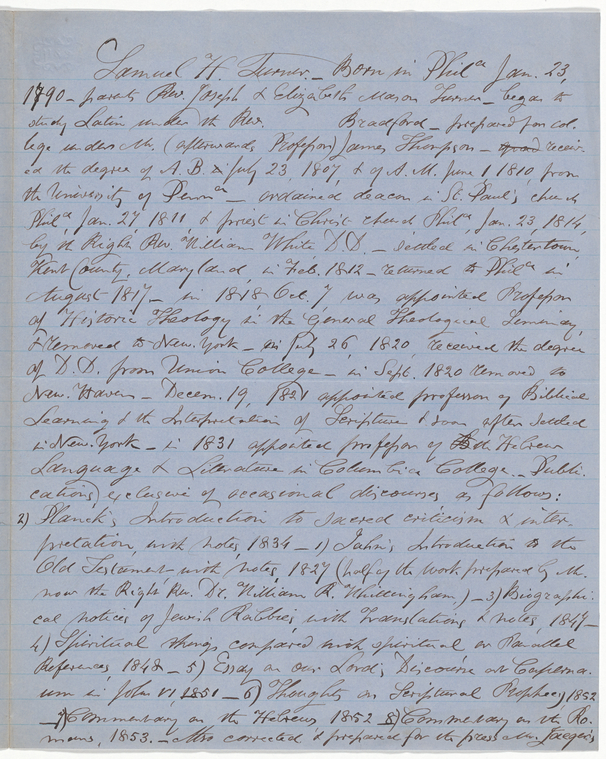 Samuel H. Turner. – Born in Phila Jan. 23,
1790 – parents Rev. Joseph & Elizabeth Mason Turner – began to
study Latin under the Rev. Bradford – prepared for col-
lege under Mr. (afterwards Professor) James Thompson – receiv-
ed the degree of A.B. July 23, 1807, & of A.M. June 1 1810, from
the University of Penna – ordained deacon in St. Paul's church
Phila, Jan. 27, 1811 & priest in Christ church Phila, Jan. 23, 1814,
by the Right Rev. William White D.D. – settled in Chestertown,
Kent County, Maryland in Feb. 1812 – returned to Phila in
August 1817 – in 1818 Oct. 7 was appointed Professor
of Historic Theology in the General Theological Seminary,
& removed to New. York – in July 26, 1820, received the degree
of D.D. from Union College – in Sept. 1820 removed to
New. Haven – Decem. 19, 1821 appointed professor of Biblical
Learning & the Interpretation of Scripture & soon after settled
in New. York – in 1831 appointed professor of the Hebrew
Language & Literature in Columbia College. – Publi-
cations, exclusive of occasional discourses as follows:
2) Planck's Introduction to sacred criticism & inter-
pretation, with notes, 1834 – 1) Jahn's Introduction to the
Old Testament with notes, 1827 (half of the work prepared by Mr.
now the Right Rev. Dr. William R. Whittingham) – 3) Biographi-
cal notices of Jewish Rabbies, with translations & notes, 1847 –
4) Spiritual things compared with spiritual or Parallel
References, 1848 – 5) Essay on our Lord's Discourse at Caperna-
um in John VI, 1851 – 6) Thoughts on Scriptural Prophecy, 1852
– 7) Commentary on the Hebrews 1852 – 8) Commentary on the Ro-
mans, 1853. – Also corrected & prepared for the press Mr. Jaeger's